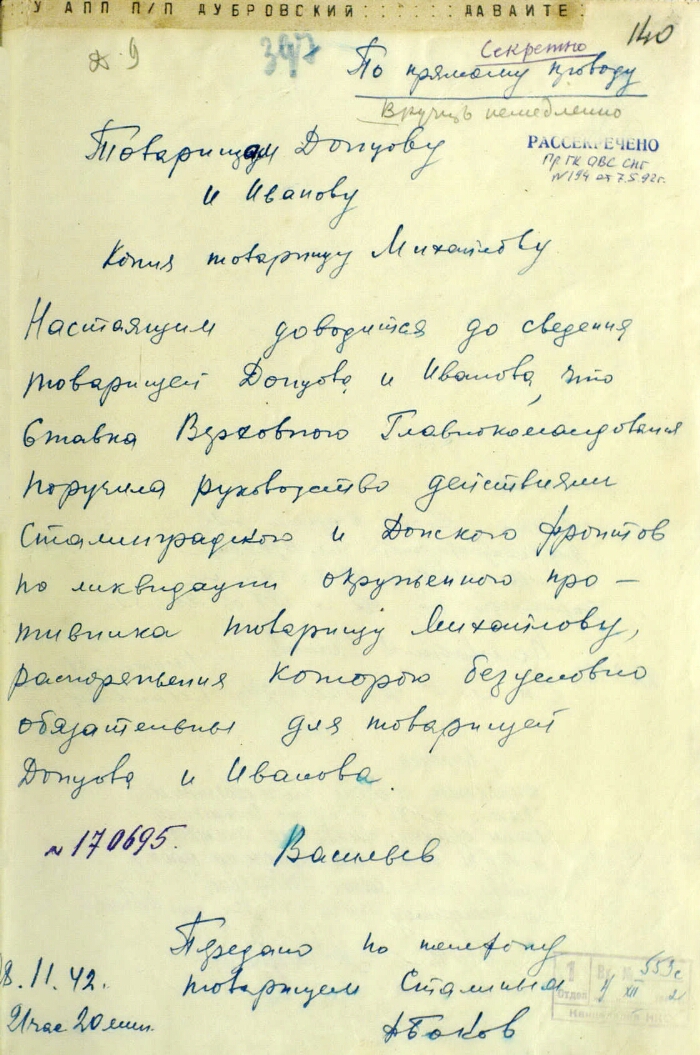 У АПП П/П ДУБРОВСКИЙ : : : ДАВАЙТЕ :
140
9
397
Секретно
По прямому проводу
Вручить немедленно
РАССЕКРЕЧЕНО
Пр ГК ОВС СНГ
№ 194 от 7.5.92г.
Товарищам Донцову
и Иванову
Копия товарищу Михайлову
Настоящим доводится до сведения
товарищей Донцова и Иванова, что
Ставка Верховного Главнокомандования
поручила руководство действиями
Сталинградского и Донского фронтов
по ликвидации окруженного про-
тивника товарищу Михайлову,
распоряжения которого безусловно
обязательны для товарищей
Донцова и Иванова.
№ 170695.
Васильев
Передано по телефону
8.11.42.
товарищем Сталиным
21 час 20 мин.
Боков
1
Отдел
Вх. №
553с
XII